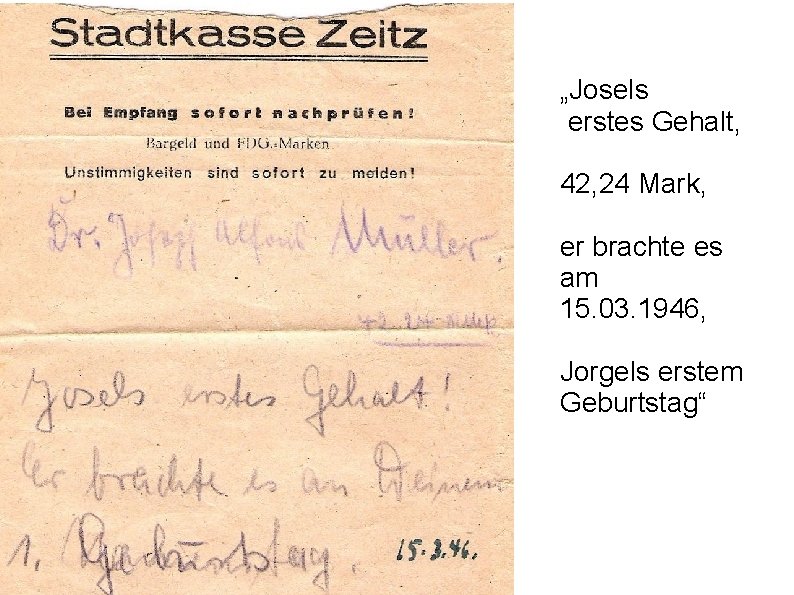 Stadtkasse Zeitz
Bei Empfang sofort nachprüfen!
Bargeld und FDG.-Marken
Unstimmigkeiten sind sofort zu melden!
Dr. Josef Alfons Müller.
42.24 Mark
Josels erstes Gehalt!
Er brachte es an Deinem
1. Geburtstag. 15.3.46.
„Josels
erstes Gehalt,
42,24 Mark,
er brachte es
am
15.03.1946,
Jorgels erstem
Geburtstag“